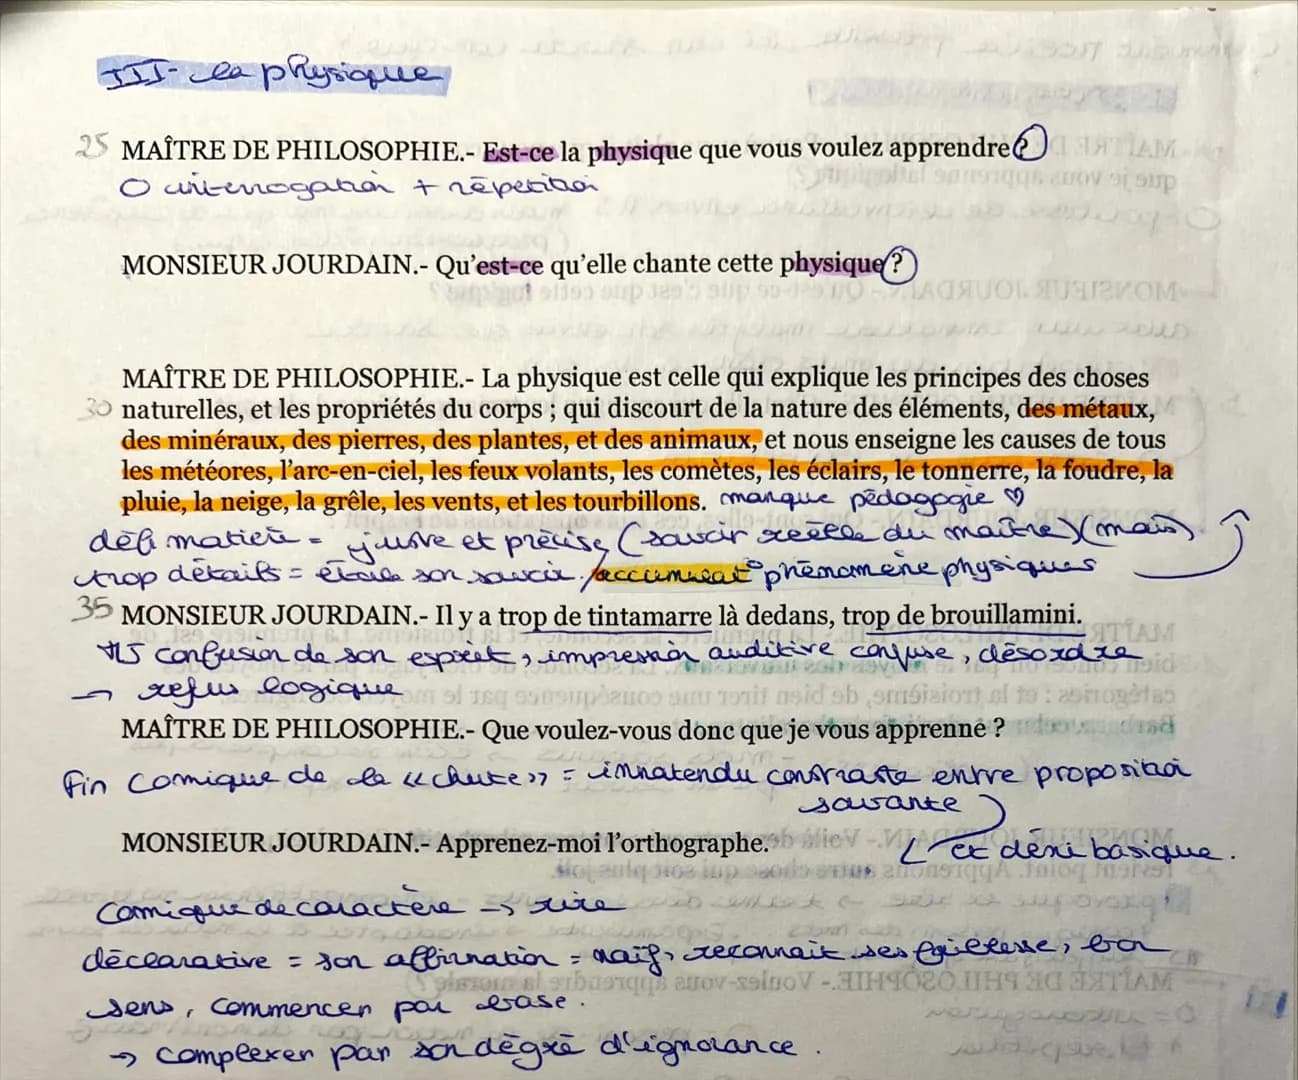 III- la physique
25 MAÎTRE DE PHILOSOPHIE.- Est-ce la physique que vous voulez apprendre ?
O interrogation + répétition
MONSIEUR JOURDAIN.- Qu'est-ce qu'elle chante cette physique ?
MAÎTRE DE PHILOSOPHIE.- La physique est celle qui explique les principes des choses
30 naturelles, et les propriétés du corps ; qui discourt de la nature des éléments, des métaux,
des minéraux, des pierres, des plantes, et des animaux, et nous enseigne les causes de tous
les météores, l'arc-en-ciel, les feux volants, les comètes, les éclairs, le tonnerre, la foudre, la
pluie, la neige, la grêle, les vents, et les tourbillons. manque pédagogie ♡
défi matière = juste et précise (savoir réelle du maître) (mais)
trop détails = étale son savoir. /accumulat° phénomène physiques
35 MONSIEUR JOURDAIN.- Il y a trop de tintamarre là dedans, trop de brouillamini.
confusion de son esprit, impression auditive confuse, désordre
→ refus logique
MAÎTRE DE PHILOSOPHIE.- Que voulez-vous donc que je vous apprenne ?
Fin comique de la «chute» = innatendu contraste entre proposition
savante
MONSIEUR JOURDAIN.- Apprenez-moi l'orthographe.
et déni basique.
Comique de caractère → rire
déclarative = son affirmation = naïf, reconnait ses faiblesse, bon
sens, commencer par base.
→ complexer par son dégré d'ignorance.